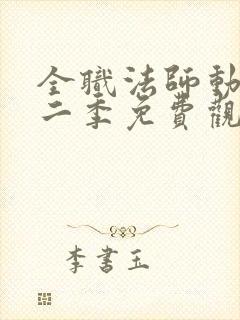 全職法師動
二季免費觀
李書玉